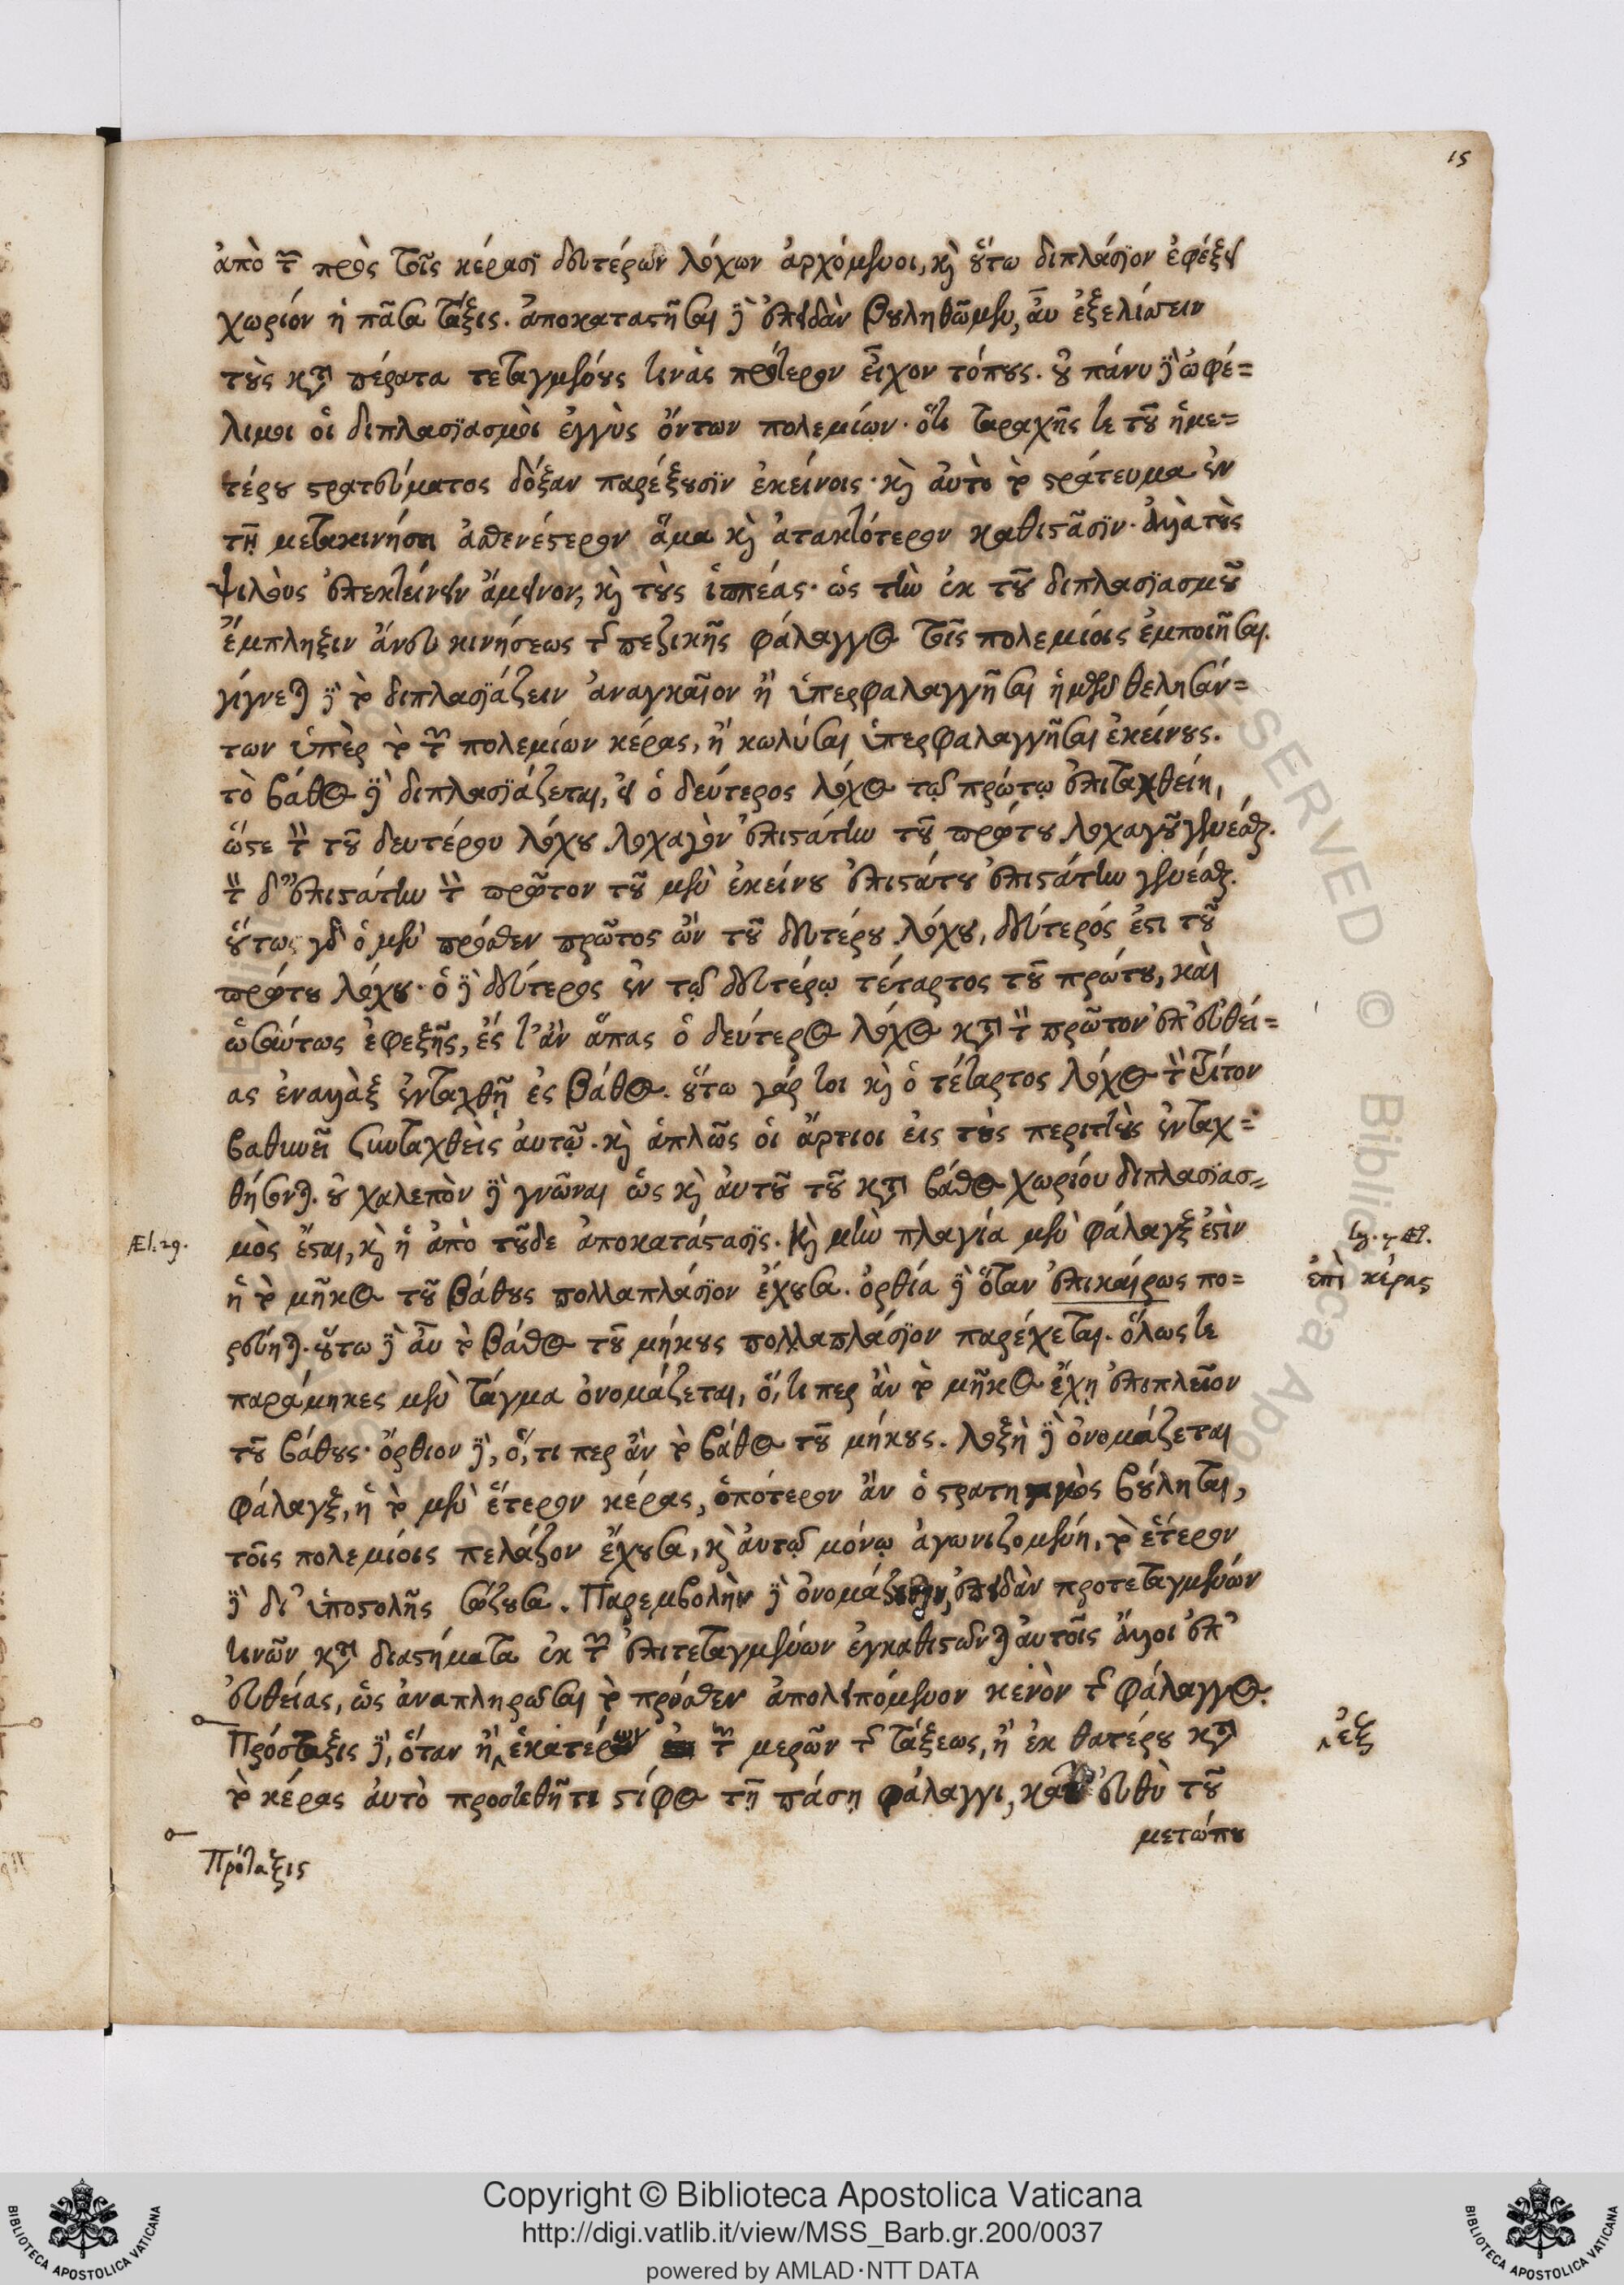 15
ἀπὸ τῶν πρὸς τοῖς κέρασι δευτέρων λόχων ἀρχόμενοι, καὶ οὕτω διπλάσιον ἐφέξει
χωρίον ἡ πᾶσα τάξις. ἀποκαταστῆσαι δὲ ἐπειδὰν βουληθῶμεν, αὖ ἐξελίσσειν
τοὺς κατὰ πέρατα τεταγμένους τινὰς πρότερον εἶχον τόπους. οὐ πάνυ δὲ ὠφέ=
λιμοι οἱ διπλασιασμοὶ ἐγγὺς ὄντων πολεμίων. ὅτι ταραχῆς τε τοῦ ἡμε=
τέρου στρατεύματος δόξαν παρέξουσιν ἐκείνοις· καὶ αὐτὸ τὸ στράτευμα ἐν
τῇ μετακινήσει ἀσθενέστερον ἅμα καὶ ἀτακτότερον καθιστᾶσιν. ἀλλὰ τοὺς
ψιλοὺς ἐπεκτείνειν ἄμεινον, καὶ τοὺς ἱππέας· ὡς τὴν ἐκ τοῦ διπλασιασμοῦ
ἔμπληξιν ἄνευ κινήσεως τῆς πεζικῆς φάλαγγος τοῖς πολεμίοις ἐμποιῆσαι.
γίγνεται δὲ τὸ διπλασιάζειν ἀναγκαῖον ἢ ὑπερφαλαγγῆσαι ἡμῶν θελησάν=
των ὑπὲρ τὸ τῶν πολεμίων κέρας, ἢ κωλῦσαι ὑπερφαλαγγῆσαι ἐκείνους.
τὸ βάθος δὲ διπλασιάζεται, εἰ ὁ δεύτερος λόχος τῷ πρώτῳ ἐπιταχθείη,
ὥστε τὸν τοῦ δευτέρου λόχου λοχαγὸν ἐπιστάτην τοῦ πρώτου λοχαγοῦ γενέσθαι.
τὸν δ' ἐπιστάτην τὸν πρῶτον τοῦ μὲν ἐκείνου ἐπιστάτου ἐπιστάτην γενέσθαι.
οὕτως γὰρ ὁ μὲν πρόσθεν πρῶτος ὢν τοῦ δευτέρου λόχου, δεύτερός ἐστι τοῦ
πρώτου λόχου· ὁ δὲ δεύτερος ἐν τῷ δευτέρῳ τέταρτος τοῦ πρώτου, καὶ
ὡσαύτως ἐφεξῆς, ἔς τ' ἂν ἅπας ὁ δεύτερος λόχος κατὰ τὸν πρῶτον ἐπ' εὐθεί=
ας ἐναλλὰξ ἐνταχθῇ ἐς βάθος. οὕτω γάρ τοι καὶ ὁ τέταρτος λόχος τὸν τρίτον
βαθυνεῖ συνταχθεὶς αὐτῷ. καὶ ἁπλῶς οἱ ἄρτιοι εἰς τοὺς περιττοὺς ἐνταχ=
θήσονται. οὐ χαλεπὸν δὲ γνῶναι ὡς καὶ αὐτοῦ τοῦ κατὰ βάθος χωρίου διπλασιασ=
Æl. 29.
μὸς ἔσται, καὶ ἡ ἀπὸ τοῦδε ἀποκατάστασις. Καὶ μὴν πλαγία μὲν φάλαγξ ἐστὶν
ἡ τὸ μῆκος τοῦ βάθους πολλαπλάσιον ἔχουσα. ὀρθία δὲ ὅταν ἐπικαίρως πο=
ἐπὶ κέρας
ρεύηται. οὕτω δὲ αὖ τὸ βάθος τοῦ μήκους πολλαπλάσιον παρέχεται. ὅλως τε
παράμηκες μὲν τάγμα ὀνομάζεται, ὅ, τι περ ἂν τὸ μῆκος ἔχῃ ἐπιπλεῖον
τοῦ βάθους· ὄρθιον δὲ, ὅ, τι περ ἂν τὸ βάθος τοῦ μήκους. λοξὴ δὲ ὀνομάζεται
φάλαγξ, ἡ τὸ μὲν ἕτερον κέρας, ὁπότερον ἂν ὁ στρατηγὸς βούληται,
τοῖς πολεμίοις πελάζον ἔχουσα, καὶ αὐτῷ μόνῳ ἀγωνιζομένη, τὸ ἕτερον
δὲ δι' ὑποστολῆς σώζουσα. Παρεμβολὴν δὲ ὀνομάζουσιν, ἐπειδὰν προτεταγμένων
τινῶν κατὰ διαστήματα ἐκ τῶν ἐπιτεταγμένων ἐγκαθιστῶνται αὐτοῖς ἄλλοι ἐπ'
εὐθείας, ὡς ἀναπληρῶσαι τὸ πρόσθεν ἀπολειπόμενον κενὸν τῆς φάλαγγος.
Πρόσταξις δὲ, ὅταν ἢ ἑκατέρων τῶν μερῶν τῆς τάξεως, ἢ ἐκ θατέρου κατὰ
ἐξ
τὸ κέρας αὐτὸ προστεθῇ τι στίφος τῇ πάσῃ φάλαγγι, κατ' εὐθὺ τοῦ
μετώπου
Πρόταξις
Copyright © Biblioteca Apostolica Vaticana
http://digi.vatlib.it/view/MSS_Barb.gr.200/0037
powered by AMLAD·NTT DATA
BIBLIOTECA APOSTOLICA VATICANA
BIBLIOTECA APOSTOLICA VATICANA